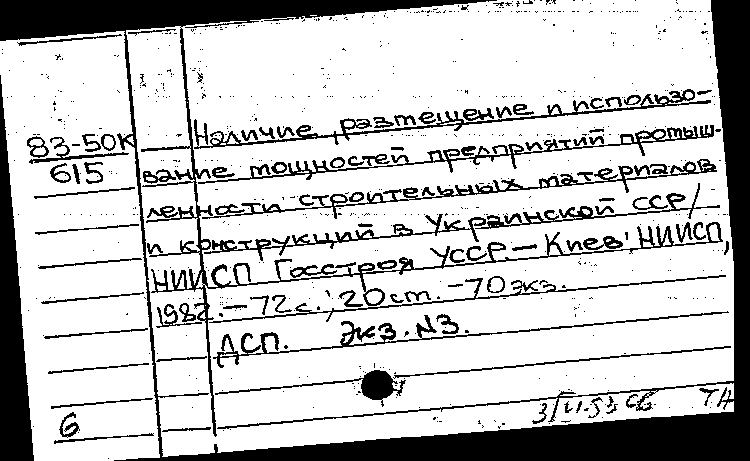 83-50К
615
Наличие, размещение и использо-
вание мощностей предприятий промыш-
ленности строительных материалов
и конструкций в Украинской ССР/
НИИСП Госстроя УССР. — Киев: НИИСП,
1982. — 72 с.; 20 ст. — 70 экз.
ДСП. Экз. №3.
6